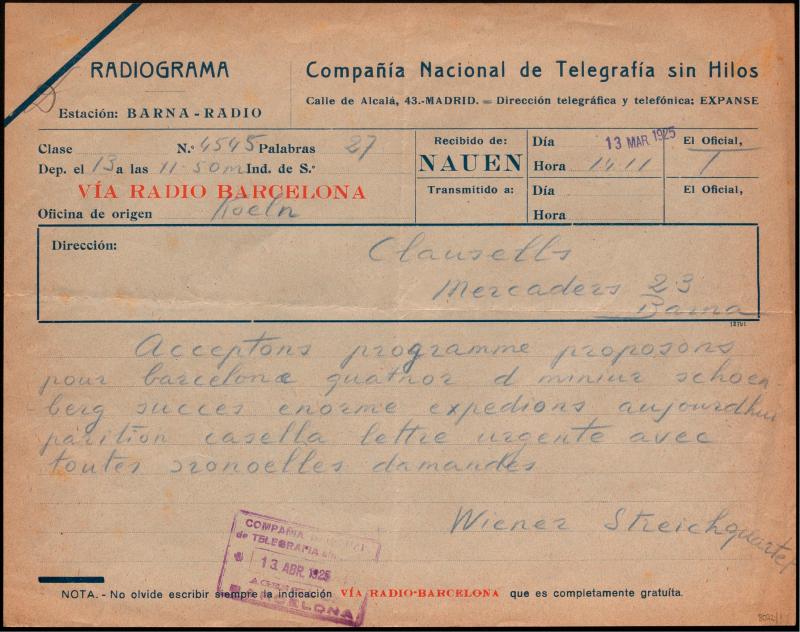 RADIOGRAMA
Estación: BARNA-RADIO
Compañía Nacional de Telegrafía sin Hilos
Calle de Alcalá, 43.-MADRID. = Dirección telegráfica y telefónica: EXPANSE
Clase N.º 4545 Palabras 27
Dep. el 13 a las 11-50 m Ind. de S.º
VÍA RADIO BARCELONA
Oficina de origen Koeln
Recibido de:
NAUEN
Transmitido a:
Día 13 MAR 1925
Hora 14.11
Día
Hora
El Oficial,
El Oficial,
Dirección:
Clausells
Mercaders 23
Barna
Acceptons programme proposons
pour barcelone quatuor d miniur schoen
berg succes enorme expedions aujourdhui
parition casella lettre urgente avec
toutes damandes
Wiener Streichquartet
COMPAÑIA
de TELEGRAFIA
13 ABR. 1925
BARCELONA
NOTA.- No olvide escribir siempre la indicación VÍA RADIO-BARCELONA que es completamente gratuíta.